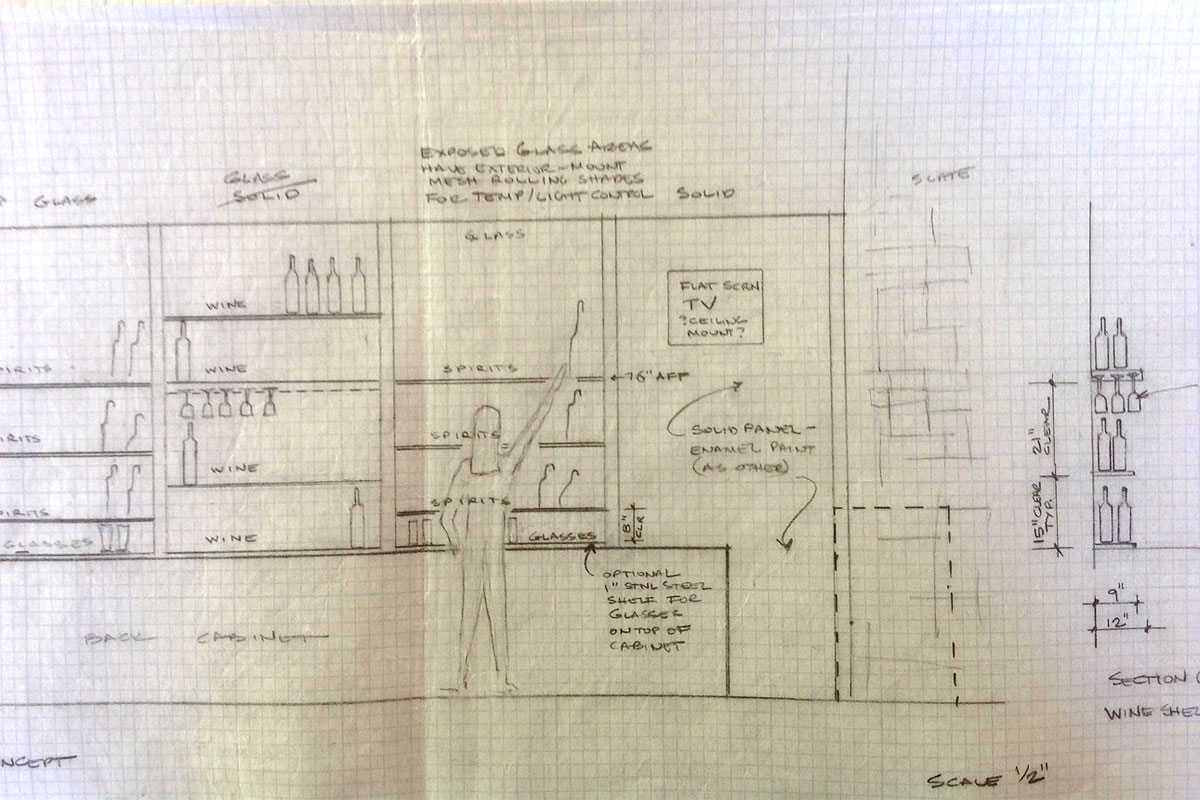 GLASS
GLASS
SOLID
EXPOSED GLASS AREAS
HAVE EXTERIOR-MOUNT
MESH ROLLING SHADES
FOR TEMP/LIGHT CONTROL
SOLID
SLATE
GLASS
WINE
WINE
WINE
WINE
SPIRITS
SPIRITS
SPIRITS
GLASSES
GLASSES
FLAT SCRN
TV
?CEILING
MOUNT?
76" AFF
SOLID PANEL-
ENAMEL PAINT
(AS OTHER)
8"
CLR
OPTIONAL
1" STNL STEEL
SHELF FOR
GLASSES
ON TOP OF
CABINET
BACK CABINET
21"
CLEAR
15" CLEAR
TYP.
9"
12"
SECTION
WINE
SCALE 1/2"